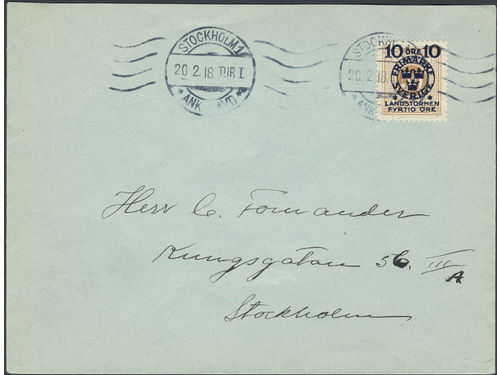 STOCKHOLM 1
20.2.18. TUR I
* ANK. AVD. *
STOCKHOLM
20.2.18
10 ÖRE 10
FRIMÄRKE
SVERIGE
LANDSTORMEN
FYRTIO ÖRE
Herr C. Fornander
Kungsgatan 56 III
A
Stockholm